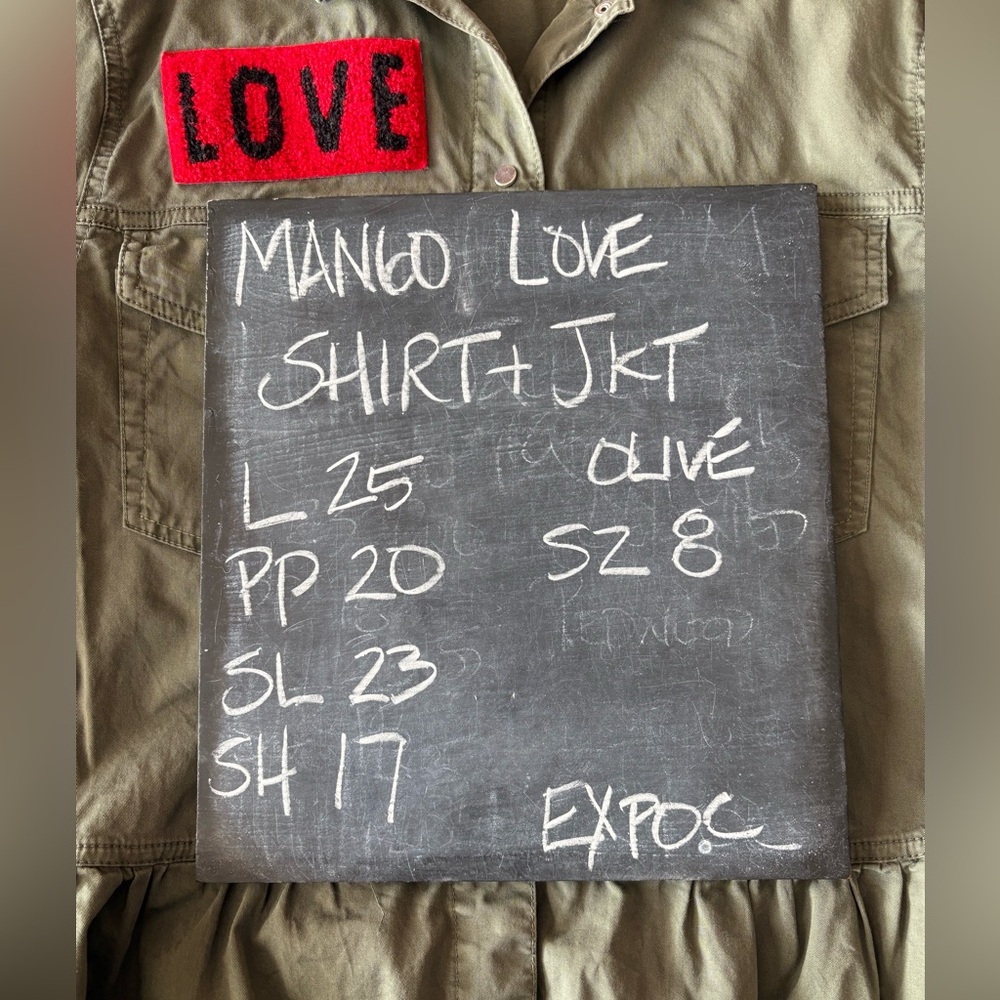 LOVE
MANGO LOVE
SHIRT + JKT
L 25 OLIVE
PP 20 SZ 8
SL 23
SH 17
EXPO.C